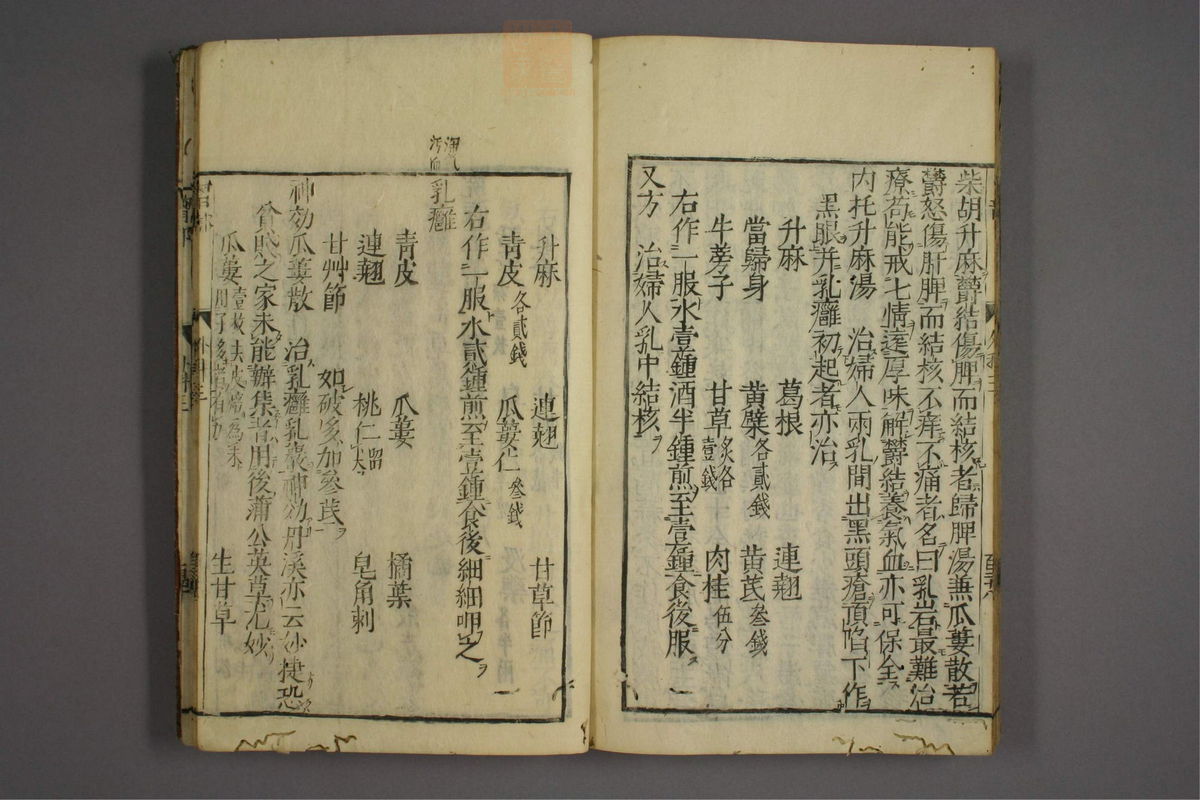 柴胡升麻欝結傷脾而結核者歸脾湯兼瓜蔞散若
欝怒傷肝脾而結核不痒不痛者名曰乳岩最難治
療苟能戒七情遠厚味解欝結養氣血亦可保全
内托升麻湯 治婦人兩乳間出黑頭瘡頂陷下作
黑眼并乳癰初起者亦治
升麻 葛根 連翹
當歸身 黄檗各貳錢 黄芪叁錢
牛蒡子 甘草炙各壹錢 肉桂伍分
右作一服水壹鍾酒半鍾煎至壹鍾食後服
又方 治婦人乳中結核
升麻 連翹 甘草節
青皮各貳錢 瓜蔞仁叁錢
右作一服水貳鍾煎至壹鍾食後細細呷之
乳癰
青皮 瓜蔞 橘葉
連翹 桃仁留尖 皂角刺
甘艸節 如破多加參芪
神効瓜蔞散 治乳癰乳岩神効丹溪亦云妙捷恐
貧賤之家未能辦集者用後蒲公英草尤妙
瓜蔞壹枚去皮焙為末用子多者有力 生甘草